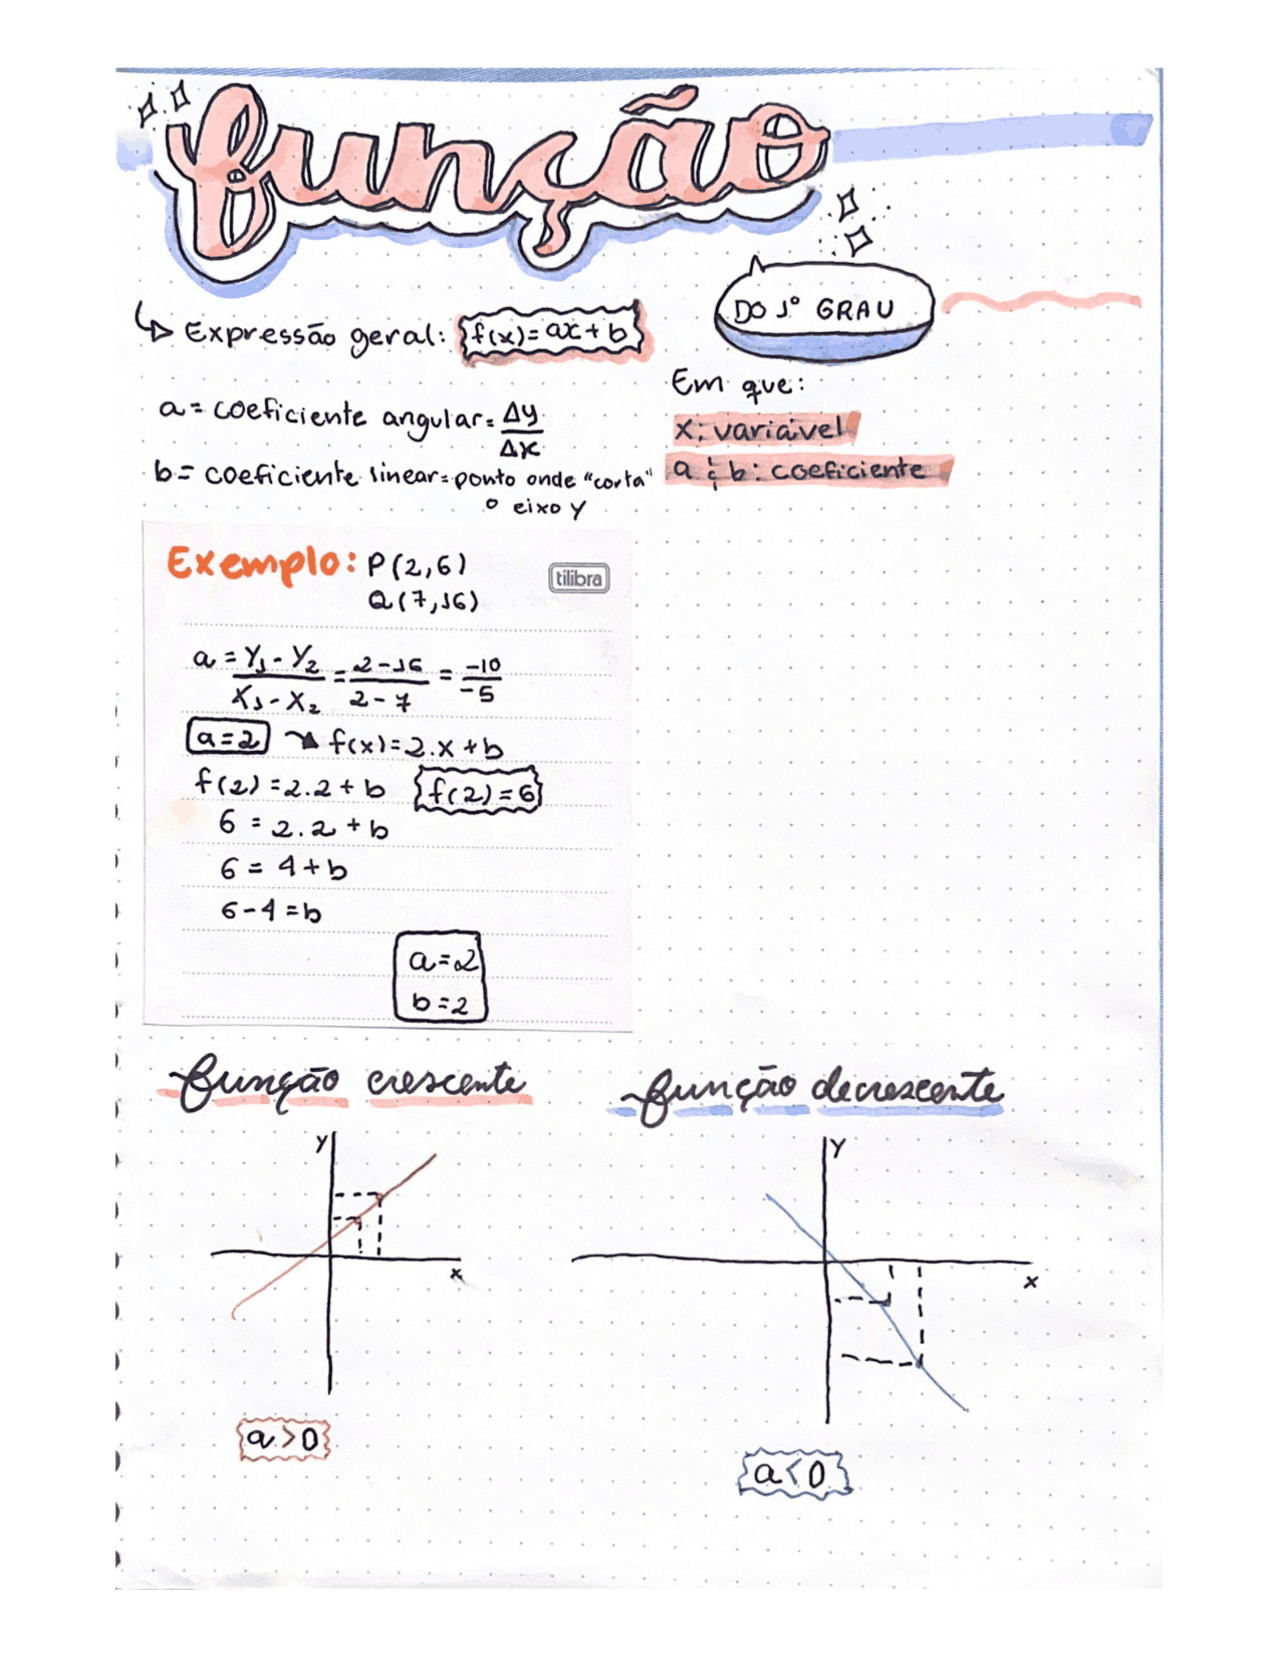 função
DO 1º GRAU
Expressão geral: f(x)=ax+b
Em que:
x: variável
a e b: coeficiente
a = coeficiente angular = Δy/Δx
b = coeficiente linear = ponto onde "corta"
o eixo y
Exemplo: P(2,6)
Q(7,16)
tilibra
a = Y₁-Y₂/X₁-X₂ = 2-16/2-7 = -10/-5
a=2 f(x)=2.x+b
f(2)=2.2+b f(2)=6
6=2.2+b
6=4+b
6-4=b
a=2
b=2
função crescente
y
x
a>0
função decrescente
y
x
a<0